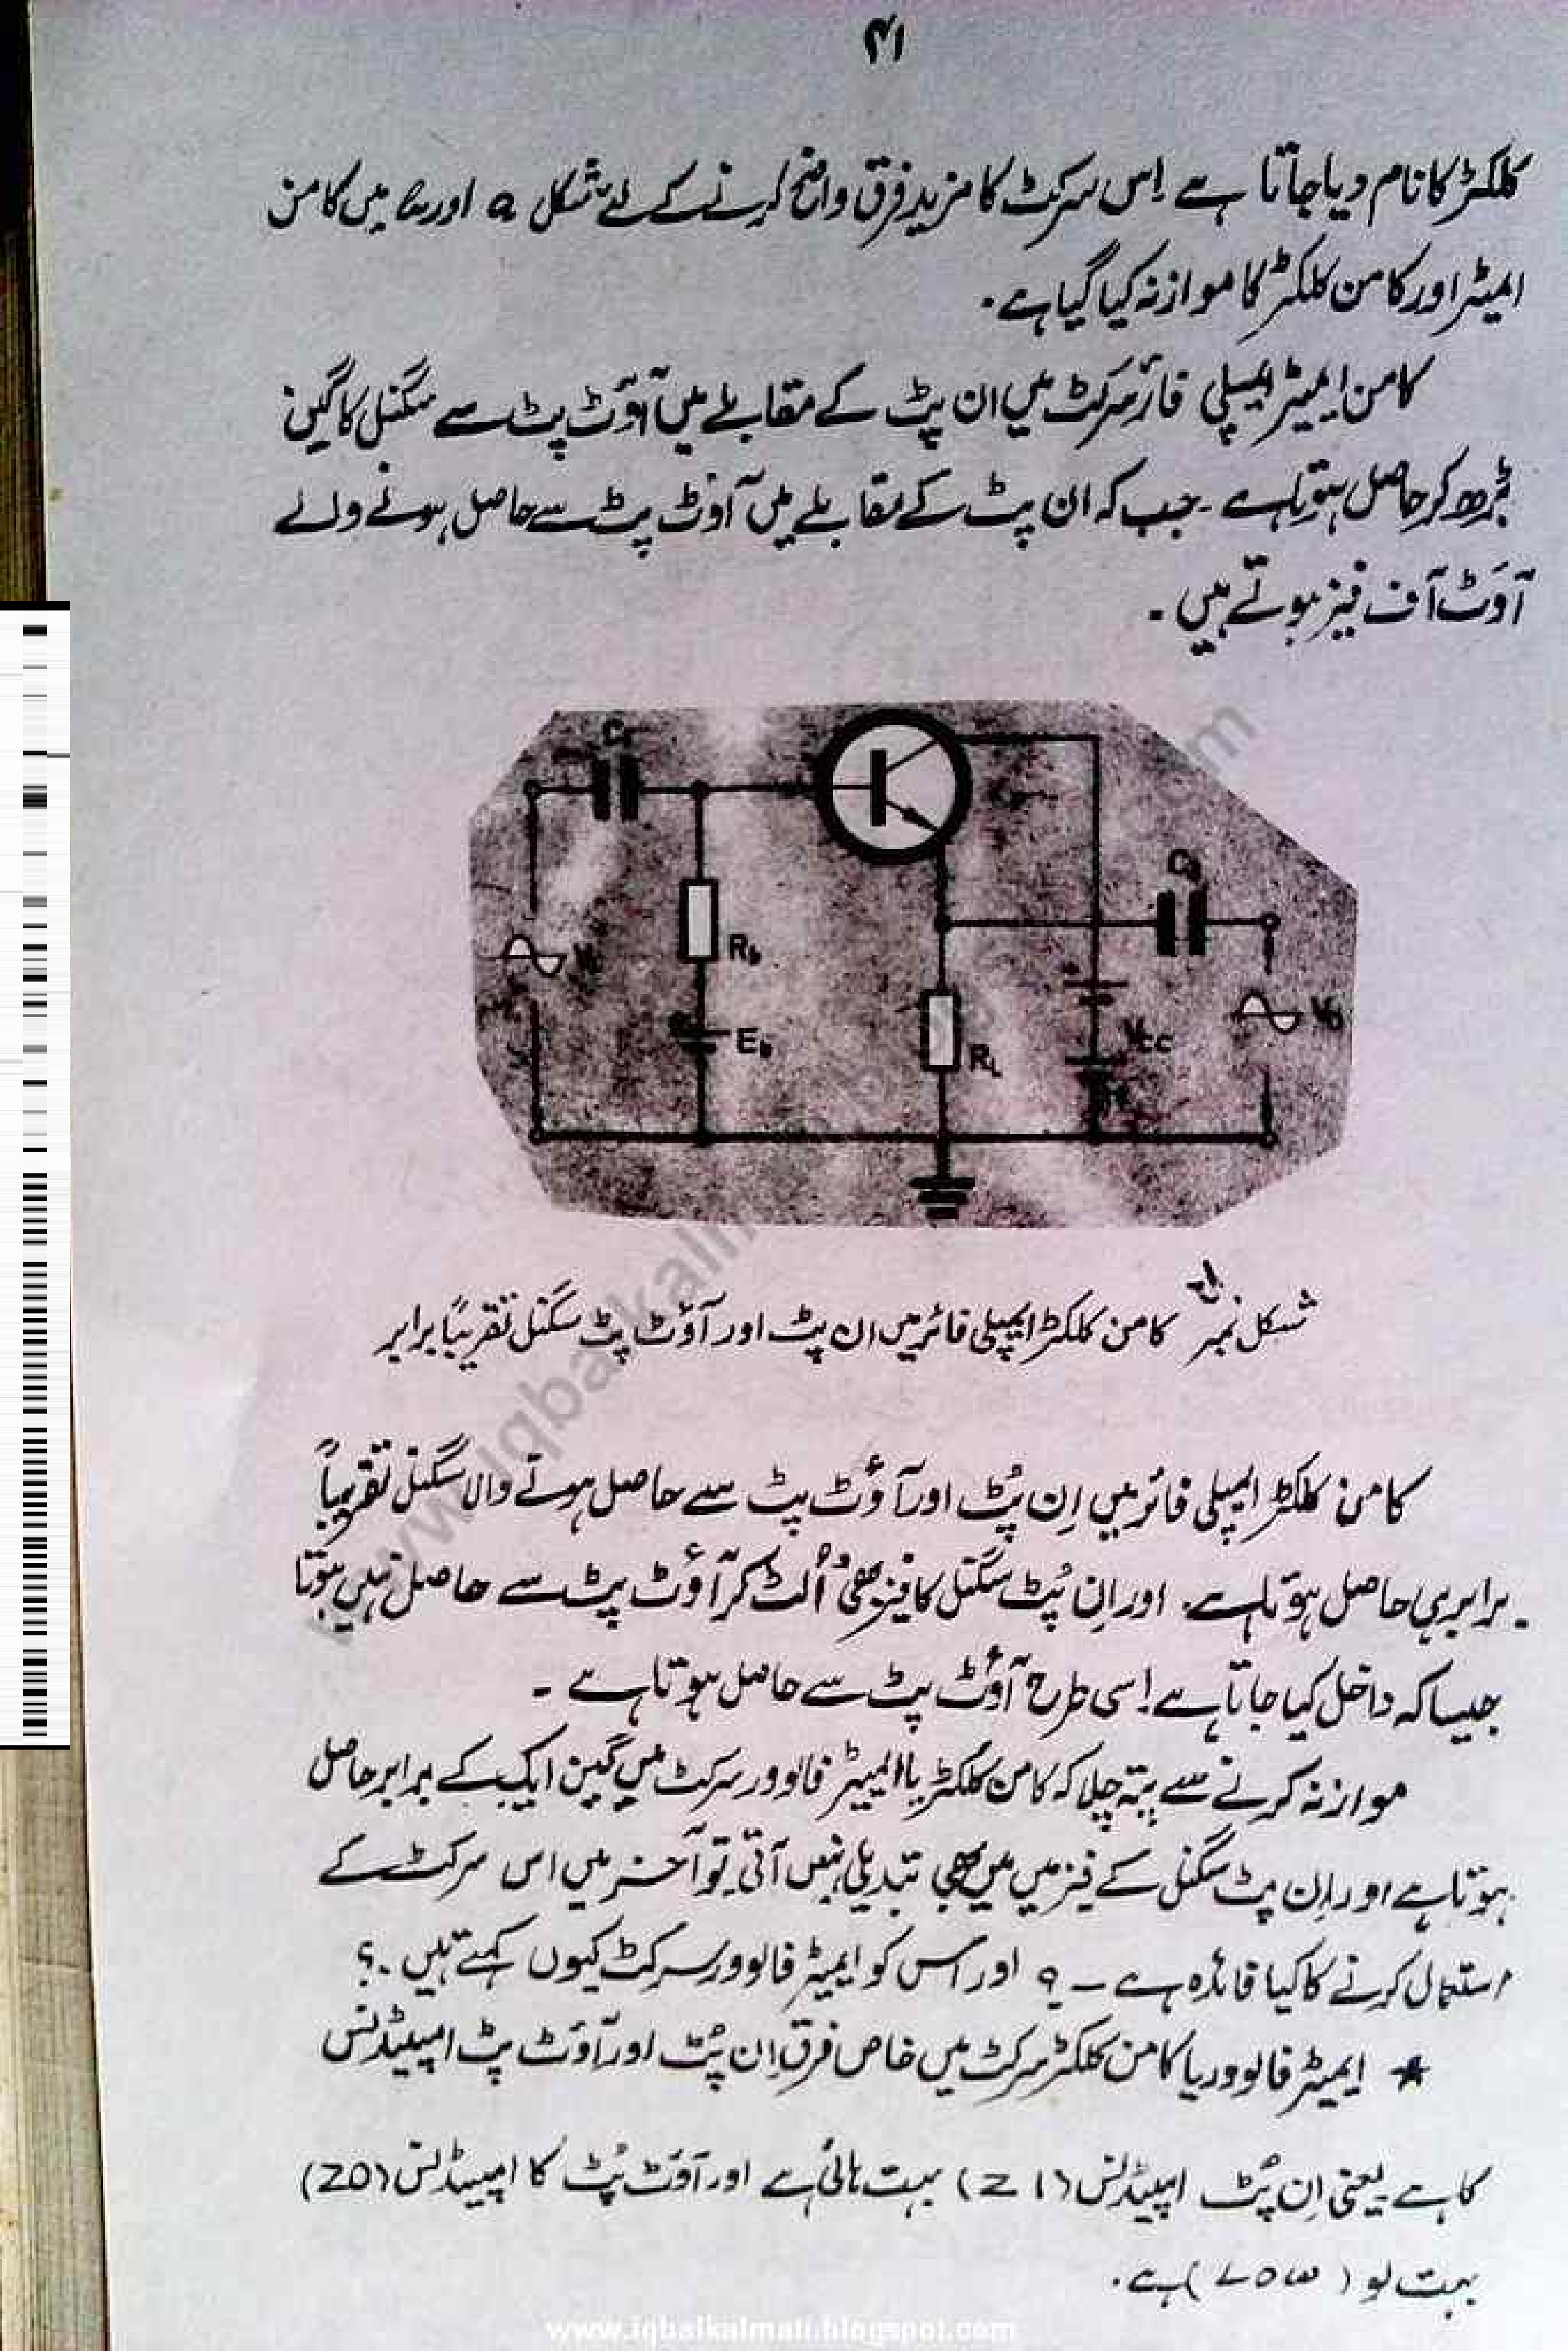 ۴۱
کلکٹر کا نام دیا جاتا ہے اِس سرکٹ کا مزید فرق واضح کرنے کے لئے شکل a اور میں کامن
ایمیٹر اور کامن کلکٹر کا موازنہ کیا گیا ہے۔
کامن ایمیٹر ایمپلی فائر سرکٹ میں ان پٹ کے مقابلے میں آؤٹ پٹ سے سگنل کا گین
بڑھ کر حاصل ہوتا ہے۔ جب کہ ان پٹ کے مقابلے میں آؤٹ پٹ سے حاصل ہونے والے
آؤٹ آف فیز ہوتے ہیں۔
C
Rb
Eb
RL
Vcc
Vo
شکل نمبر کامن کلکٹر ایمپلی فائر میں ان پٹ اور آؤٹ پٹ سگنل تقریباً برابر
کامن کلکٹر ایمپلی فائر میں اِن پُٹ اور آؤٹ پٹ سے حاصل ہونے والا سگنل تقریباً
برابر ہی حاصل ہوتا ہے۔ اور اِن پُٹ سگنل کا فیز بھی اُلٹ کر آؤٹ پٹ سے حاصل نہیں ہوتا۔
جیسا کہ داخل کیا جاتا ہے اِسی طرح آؤٹ پٹ سے حاصل ہوتا ہے ۔
موازنہ کرنے سے پتہ چلا کہ کامن کلکٹر یا ایمیٹر فالوور سرکٹ میں گین ایک کے برابر حاصل
ہوتا ہے اور اِن پٹ سگنل کے فیز میں میں بھی تبدیلی نہیں آتی۔ تو آخر میں اس سرکٹ کے
استعمال کرنے کا کیا فائدہ ہے ۔ ؟ اور اس کو ایمیٹر فالوور سرکٹ کیوں کہتے ہیں ۔؟
* ایمیٹر فالوور یا کامن کلکٹر سرکٹ میں خاص فرق اِن پُٹ اور آؤٹ پٹ امپیڈنس
کا ہے یعنی اِن پُٹ امپیڈنس (Z1) بہت ہائی ہے اور آؤٹ پُٹ کا امپیڈنس (ZO)
بہت لو (LOW) ہے۔
www.iqbalkalmati.blogspot.com